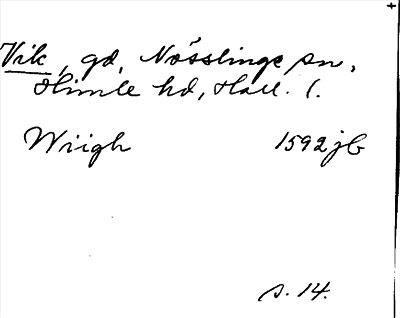 Vik, gd, Nösslinge sn,
Himle hd, Hall. l.
Wiigh 1592 jb
s. 14.